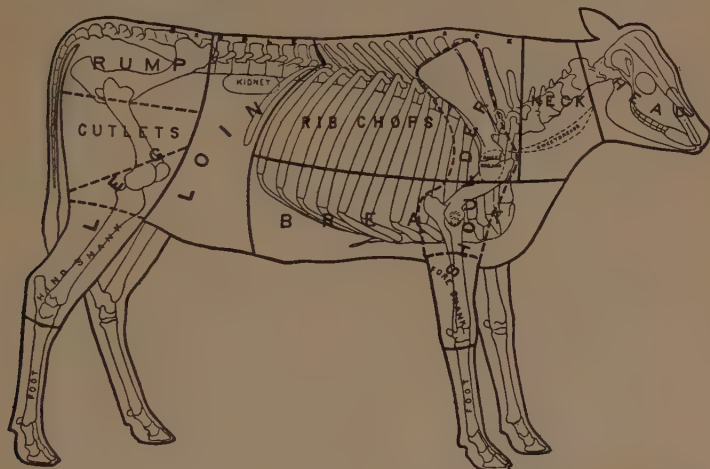 RUMP
KIDNEY
CUTLETS
LEG
LOIN
RIB CHOPS
SHOULDER
NECK
HEAD
SWEETBREADS
BREAST
HIND SHANK
FORE SHANK
FOOT
FOOT